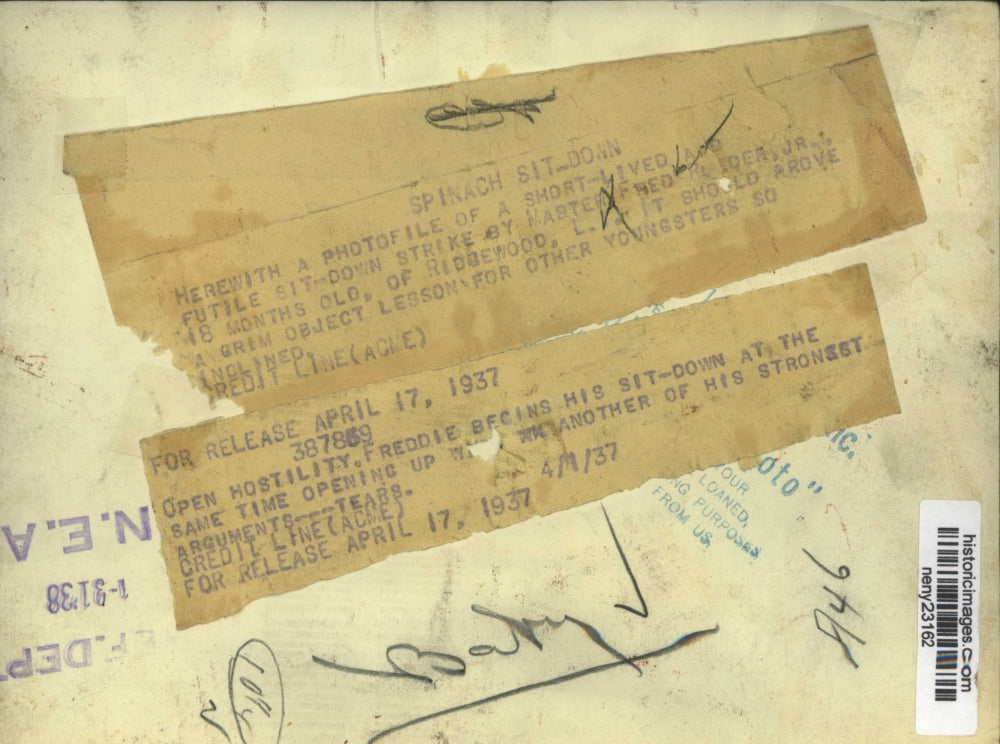 SPINACH SIT-DOWN
HEREWITH A PHOTOFILE OF A SHORT-LIVED AND
FUTILE SIT-DOWN STRIKE BY MASTER FRED JR.,
18 MONTHS OLD, OF RIDGEWOOD, L. IT SHOULD PROVE
A GRIM OBJECT LESSON FOR OTHER YOUNGSTERS SO
INCLINED.
CREDIT LINE(ACME)
FOR RELEASE APRIL 17, 1937
387869
OPEN HOSTILITY. FREDDIE BEGINS HIS SIT-DOWN AT THE
SAME TIME OPENING UP ANOTHER OF HIS STRONGEST
ARGUMENTS---TEARS.
CREDIT LINE(ACME) 4/1/37
FOR RELEASE APRIL 17, 1937
INC.
oto"
YOUR
LOANED,
NG PURPOSES
FROM US,
N.E.A
1-31'38
EF. DEPT
Baby
946
historicimages.com
neny23162